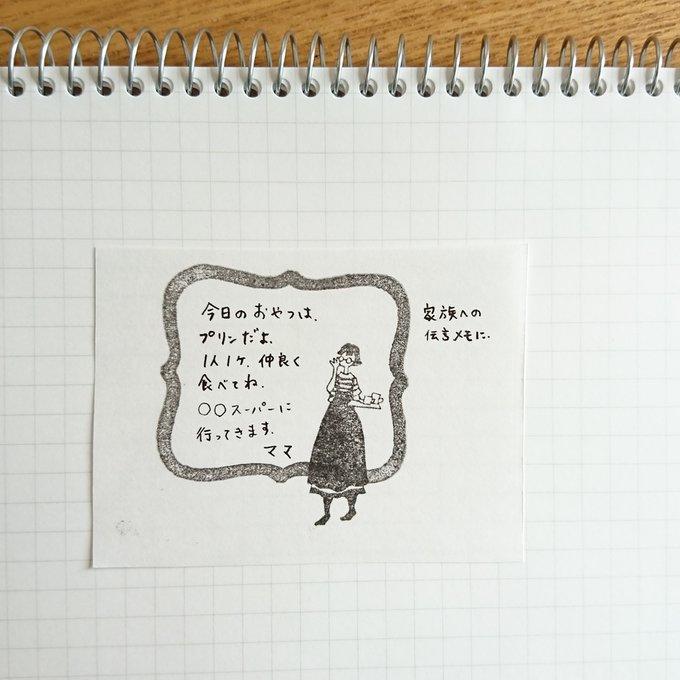 今日のおやつは、
プリンだよ。
1人1ケ、仲良く
食べてね。
○○スーパーに
行ってきます。
ママ
家族への
伝言メモに。